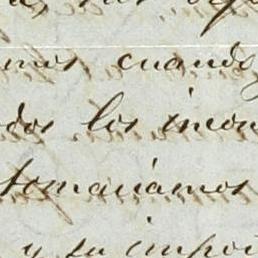 mos cuando
dos los incon
tomariamos
y su impor